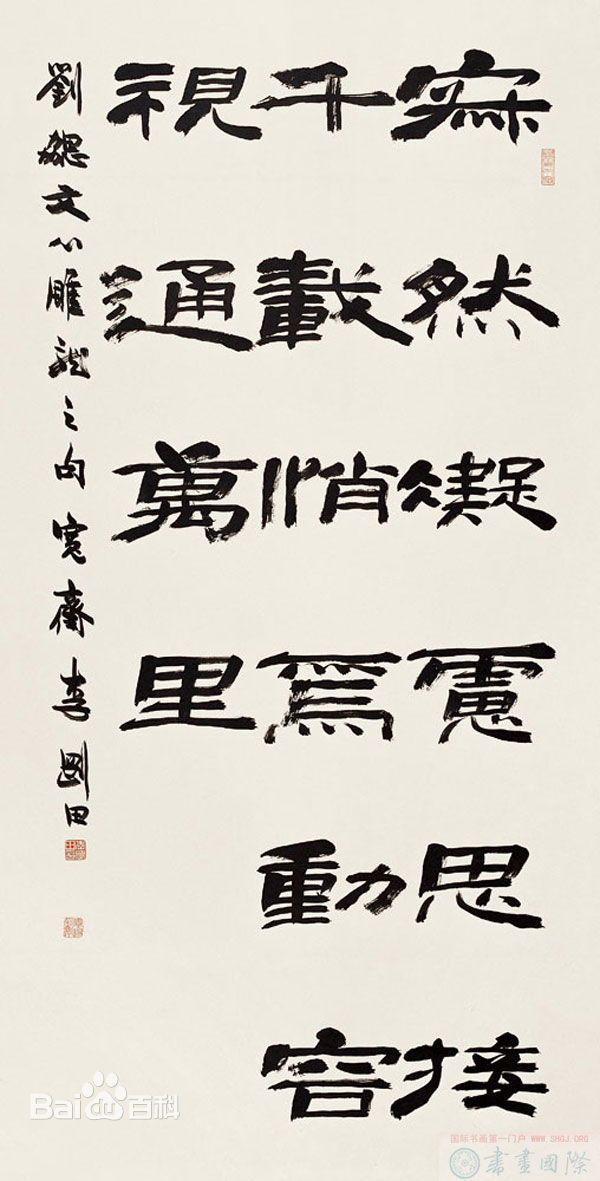 寂然凝慮思接
千載悄焉動容
視通萬里
劉勰文心雕龍之句寬齋李剛田
Bai百科
国际书画第一门户 WWW.SHGJ.ORG
書畫國際